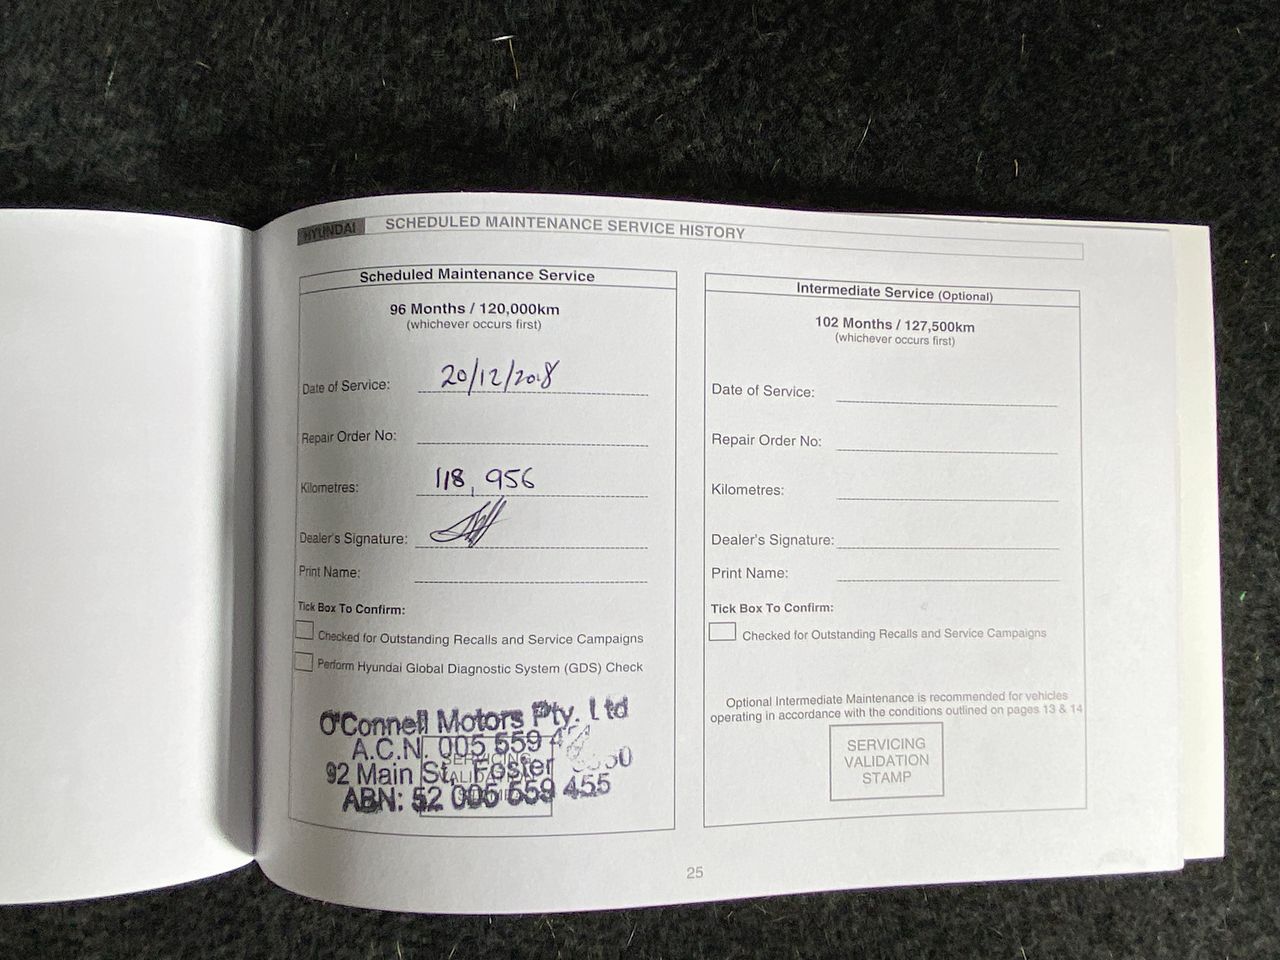 HYUNDAI SCHEDULED MAINTENANCE SERVICE HISTORY
Scheduled Maintenance Service
96 Months / 120,000km
(whichever occurs first)
Date of Service: 20/12/2018
Repair Order No:
Kilometres: 118,956
Dealer's Signature:
Print Name:
Tick Box To Confirm:
Checked for Outstanding Recalls and Service Campaigns
Perform Hyundai Global Diagnostic System (GDS) Check
O'Connell Motors Pty. Ltd
A.C.N. 005 559
92 Main St, Foster
ABN: 52 005 559 455
SERVICING
Intermediate Service (Optional)
102 Months / 127,500km
(whichever occurs first)
Date of Service:
Repair Order No:
Kilometres:
Dealer's Signature:
Print Name:
Tick Box To Confirm:
Checked for Outstanding Recalls and Service Campaigns
Optional Intermediate Maintenance is recommended for vehicles
operating in accordance with the conditions outlined on pages 13 & 14
SERVICING
VALIDATION
STAMP
25